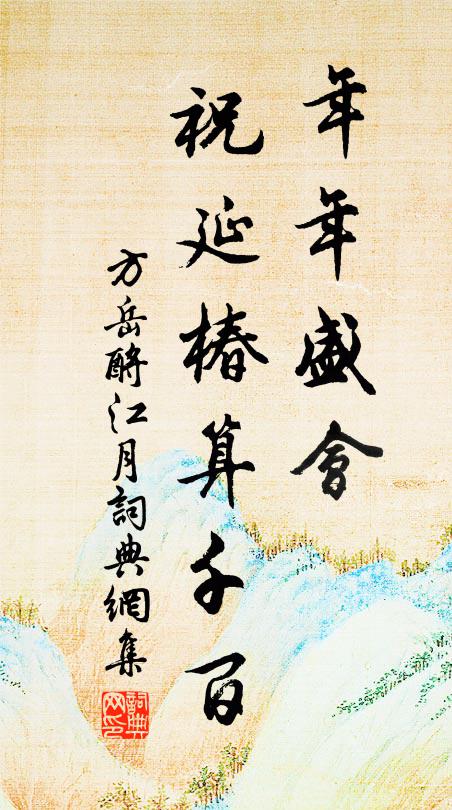 年年盛會
祝延椿算千百
方岳酹江月詞典網集
詞典網印